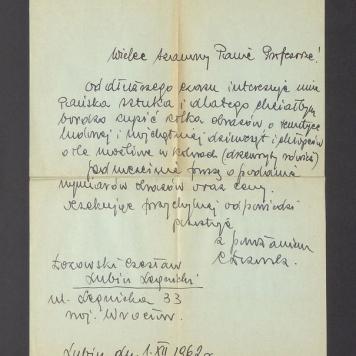 Wielce Szanowny Panie Profesorze!
Od dłuższego czasu interesuje mnie
Pańska sztuka i dlatego chciałbym
bardzo kupić kilka obrazów o tematyce
ludowej i najchętniej dziewcząt i chłopców
o ile możliwe w kolorach (drzeworyty również)
Jednocześnie proszę o podanie
wymiarów obrazów oraz ceny.
Oczekując przychylnej odpowiedzi
pozostaję
z poważaniem
Czesław
Lubin Legnicki
ul. Legnicka 33
woj. Wrocław.
Lubin dn. 1.XII.1962 r.